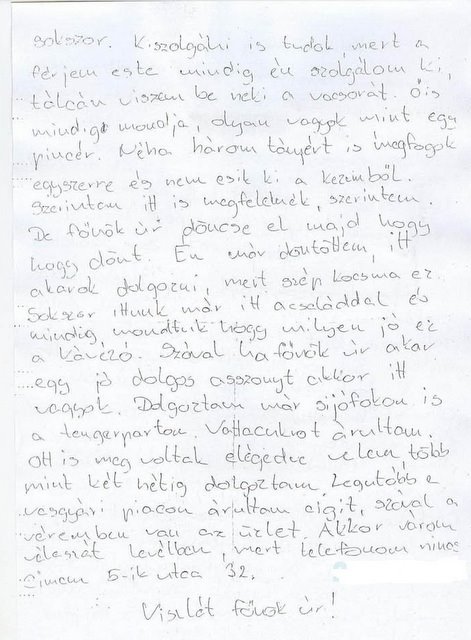 sokszor. Kiszolgálni is tudok, mert a
férjem este mindig én szolgálom ki,
tálcán viszem be neki a vacsorát. Ő is
mindig mondja, olyan vagyok mint egy
pincér. Néha három tányért is megfogok
egyszerre és nem esik ki a kezemből.
Szerintem itt is megfelelnék, szerintem.
De főnök úr döncse el majd hogy
hogy dönt. Én már döntöttem, itt
akarok dolgozni, mert szép kocsma ez.
Sokszor ittunk már itt acsaláddal és
mindig mondtuk hogy milyen jó ez
a kávézó. Szóval ha főnök úr akar
egy jó dolgos asszonyt akkor itt
vagyok. Dolgoztam már sijófokon is
a tengerparton. Vattacukrot árultam.
Ott is meg voltak elégedve velem több
mint két hétig dolgoztam Legutóbb a
vasgyári piacon árultam cigit, szóval a
véremben van az üzlet. Akkor várom
válasját levélben, mert telefonom nincs
Cimem 5-ik utca 32.
Viszlát főnök úr!